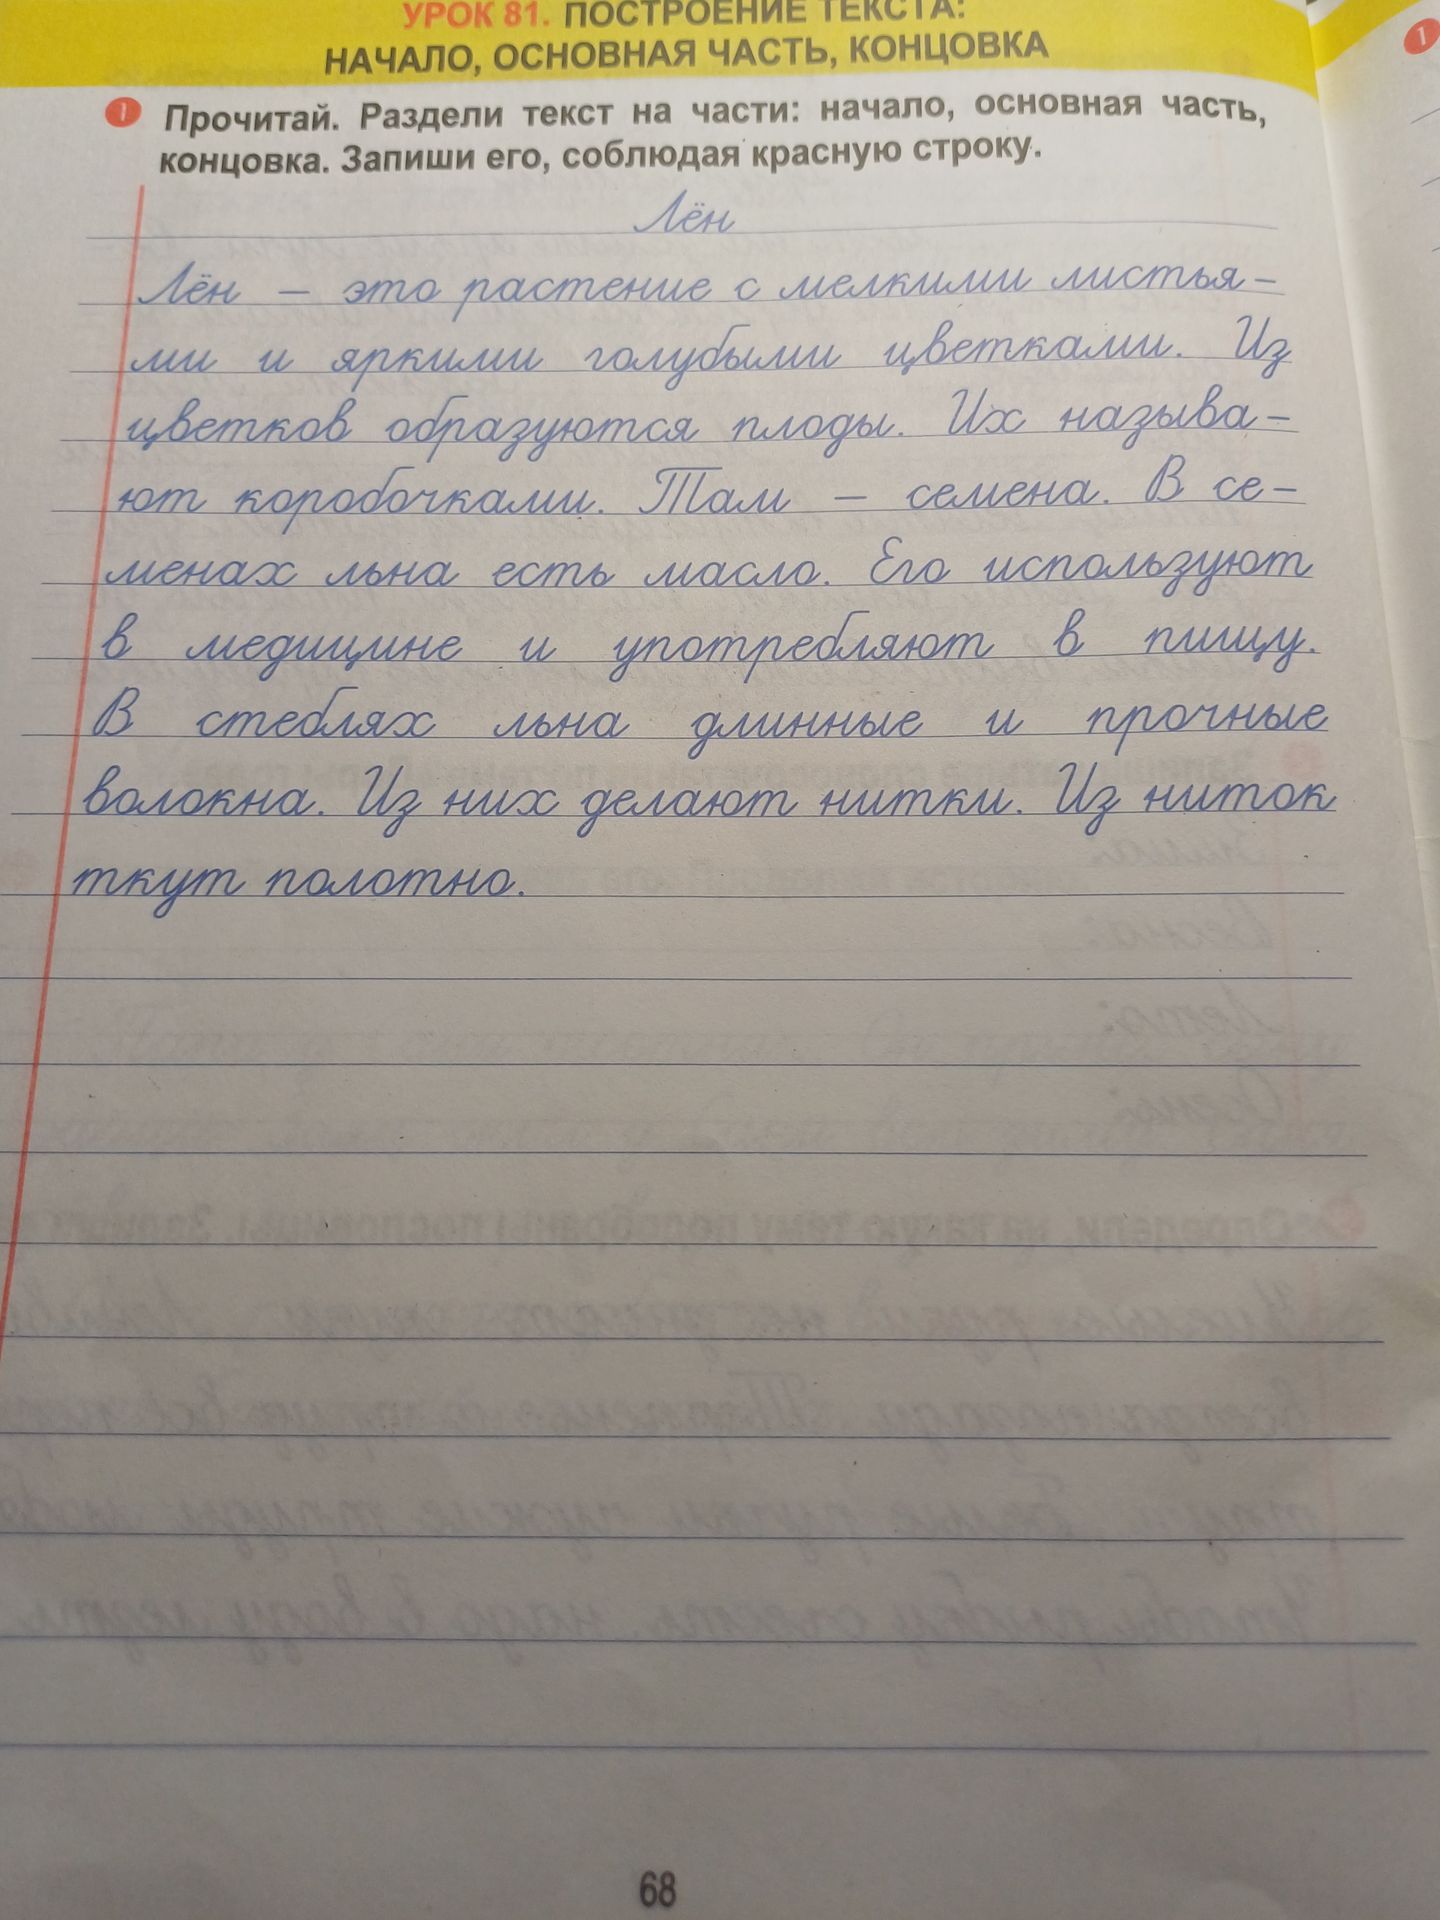 УРОК 81. ПОСТРОЕНИЕ ТЕКСТА:
НАЧАЛО, ОСНОВНАЯ ЧАСТЬ, КОНЦОВКА
1 Прочитай. Раздели текст на части: начало, основная часть,
концовка. Запиши его, соблюдая красную строку.
Лён
Лён – это растение с мелкими листья-
ми и яркими голубыми цветками. Из
цветков образуются плоды. Их называ-
ют коробочками. Там – семена. В се-
менах льна есть масло. Его используют
в медицине и употребляют в пищу.
В стеблях льна длинные и прочные
волокна. Из них делают нитки. Из ниток
ткут полотно.
68
1